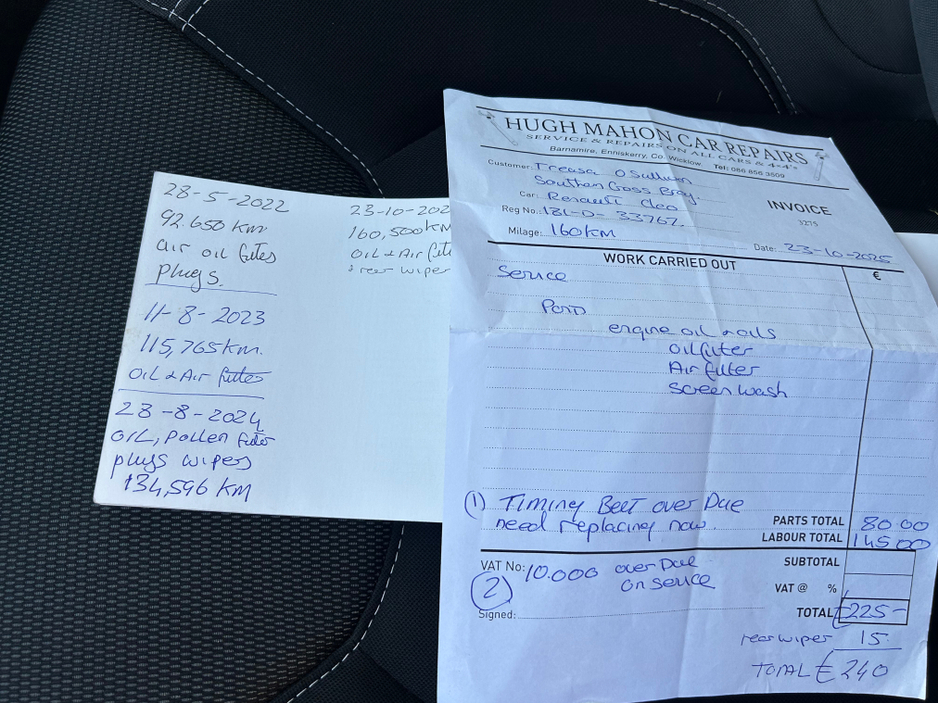 28-5-2022
92.650 km
air oil filter
plugs.
11-8-2023
115,765 km.
OIL & Air filter
28-8-2024
OIL, Pollen filter
plugs wipers
134,596 KM
23-10-202
160,500 km
OIL & Air filt
& rear wiper
HUGH MAHON CAR REPAIRS
SERVICE & REPAIRS ON ALL CARS & 4x4's
Barnamire, Enniskerry, Co. Wicklow. Tel: 086 856 3509
Customer: Treasa O Sullivan
Southern Cross Bray.
Car: Renault Cleo
Reg No.: 181-D- 33767.
Milage: 160KM
INVOICE
3215
Date: 23-10-2025
WORK CARRIED OUT
€
Service
Parts
engine oil & oils
oil filter
Air filter
Screen wash
(1) Timing Belt over Due
need replacing now.
PARTS TOTAL 80 00
LABOUR TOTAL 145 00
VAT No: 10.000 over Due
on service
(2)
Signed:
SUBTOTAL
VAT @ %
TOTAL 225-
rear wiper 15
TOTAL € 240